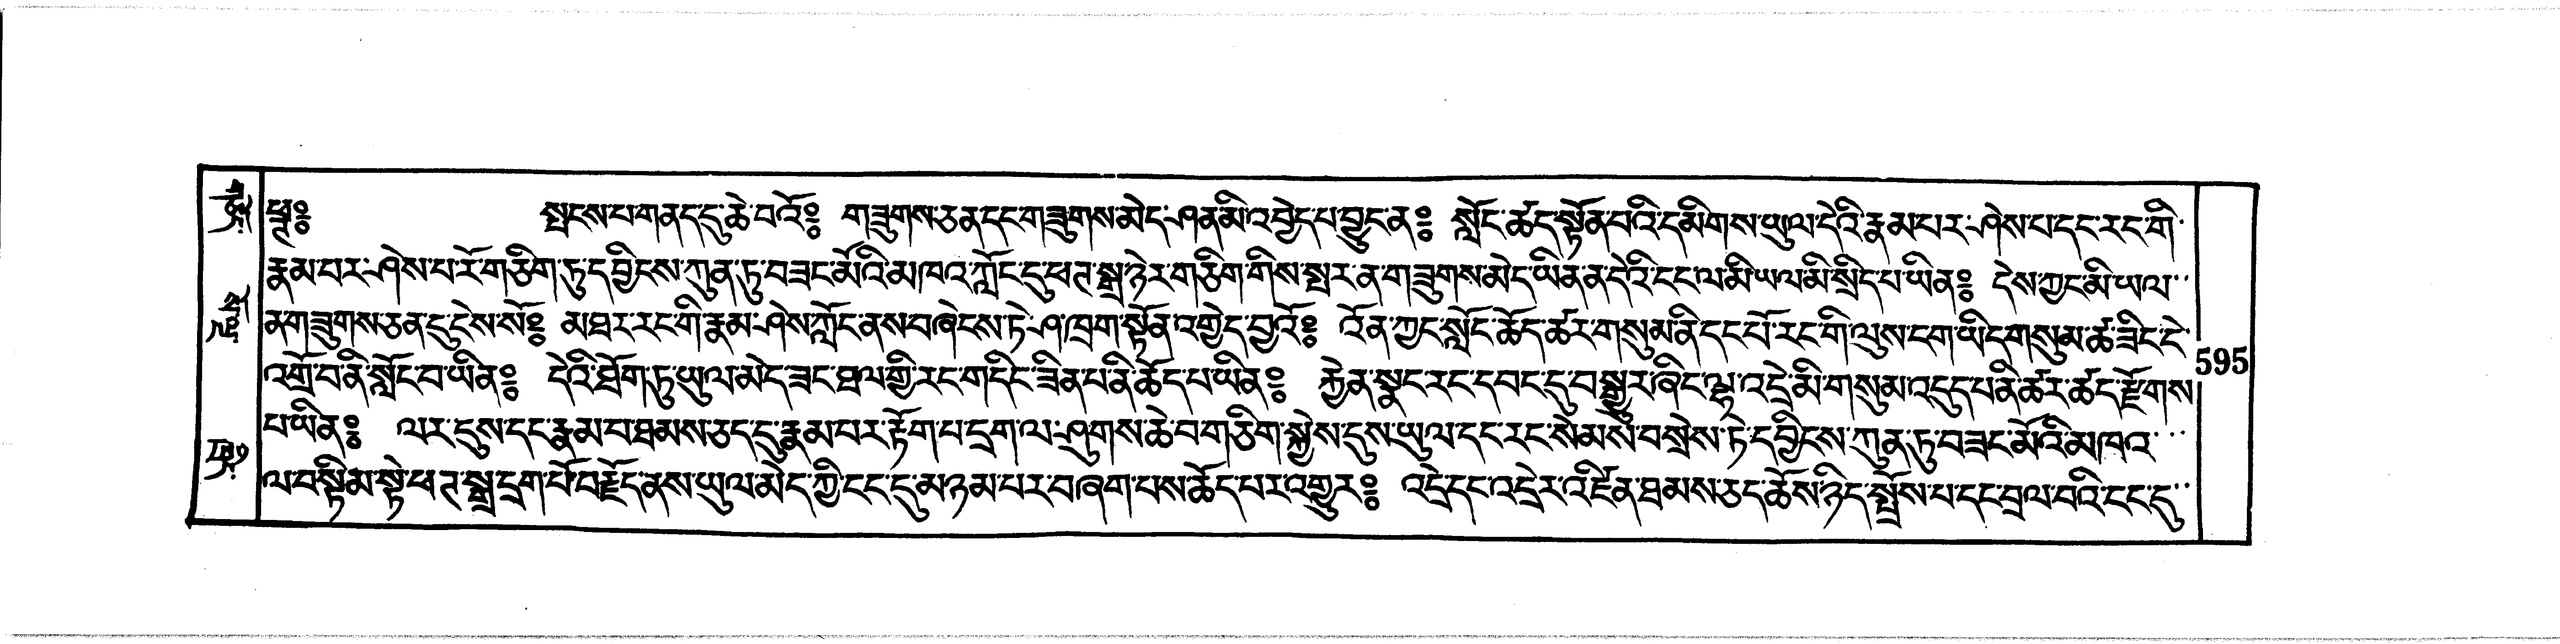 ཕཊ༔ སྤངས་པ་གནད་དུ་ཆེ་བའོ༔ གཟུགས་ཅན་དང་གཟུགས་མེད་ཤན་མི་འབྱེད་པ་བྱུང་ན༔ སློང་ཚད་སྟོན་པའི་དམིགས་ཡུལ་དེའི་རྣམ་པར་ཤེས་པ་དང་རང་གི་
རྣམ་པར་ཤེས་པ་རོ་གཅིག་ཏུ་དབྱིངས་ཀུན་ཏུ་བཟང་མོའི་མཁའ་ཀློང་དུ་ཕཊ་སྒྲ་ཉེར་གཅིག་གིས་སྤར་ན་གཟུགས་མེད་ཡིན་ན་དེའི་ངང་ལ་མི་ཡལ་མི་སྲིད་པ་ཡིན༔ དེས་ཀྱང་མི་ཡལ་
ན་གཟུགས་ཅན་དུ་ངེས་སོ༔ མཐར་རང་གི་རྣམ་ཤེས་ཀློང་ནས་བཞེངས་ཏེ་ཤ་ཁྲག་སྟོན་འགྱེད་བྱའོ༔ འོན་ཀྱང་སློང་ཚོད་ཚར་གསུམ་ནི་དང་པོ་རང་གི་ལུས་ངག་ཡིད་གསུམ་ཚ་ཟིང་ངེ་
འགྲོ་བ་ནི་སློང་བ་ཡིན༔ དེའི་ཐོག་ཏུ་ཡུལ་མེད་ཟང་ཐལ་གྱི་རང་གདིང་ཟིན་པ་ནི་ཚོད་པ་ཡིན༔ རྐྱེན་སྣང་རང་དབང་དུ་བསྒྱུར་ཞིང་ལྷ་འདྲེ་མི་གསུམ་འདུད་པ་ནི་ཚར་ཚད་རྫོགས་
པ་ཡིན༔ ལར་དུས་དང་རྣམ་པ་ཐམས་ཅད་དུ་རྣམ་པར་རྟོག་པ་དྲག་ལ་ཤུགས་ཆེ་བ་གཅིག་སྐྱེས་དུས་ཡུལ་དང་རང་སེམས་བསྲེས་ཏེ་དབྱིངས་ཀུན་ཏུ་བཟང་མོའི་མཁའ་
ལ་བསྟིམ་སྟེ་ཕཊ་སྒྲ་དྲག་པོ་བརྗོད་ནས་ཡུལ་མེད་ཀྱི་ངང་དུ་མཉམ་པར་བཞག་པས་ཆོད་པར་འགྱུར༔ འདྲེ་དང་འདྲེར་འཛིན་ཐམས་ཅད་ཆོས་ཉིད་སྤྲོས་པ་དང་བྲལ་བའི་ངང་དུ་
595